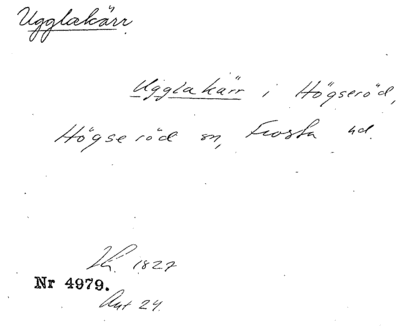 Ugglakärr
Ugglakärr i Högseröd,
Högseröd sn, Frosta hd.
1827
Nr 4979.
Akt 24.